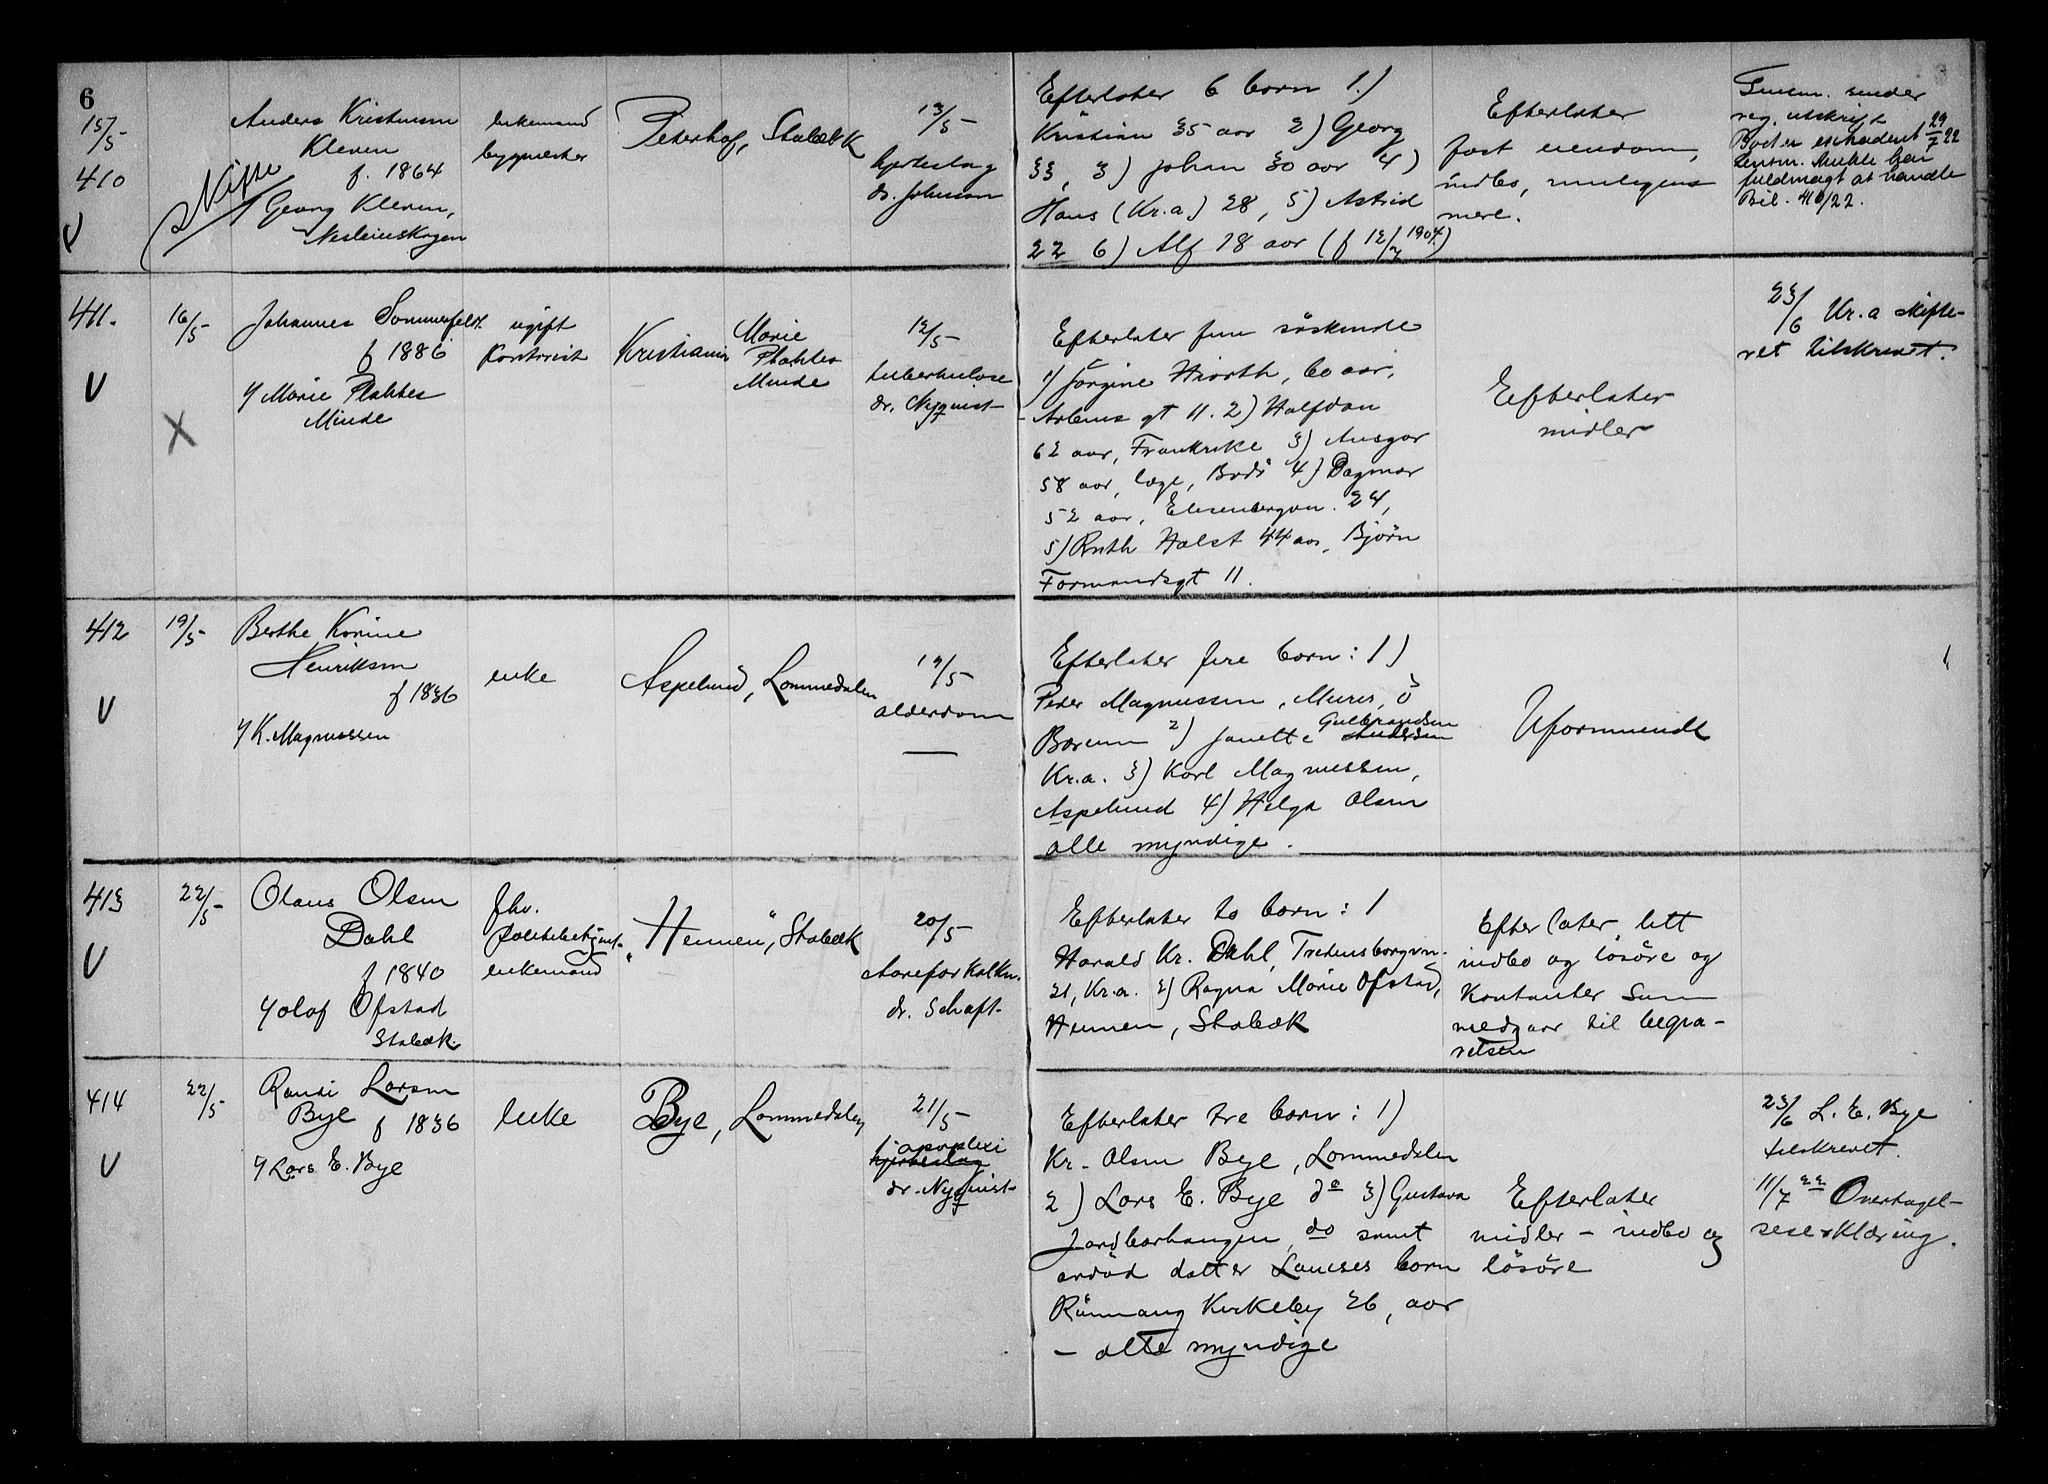 6
15/5
410
V
Skifte
Anders Kristensen
Kleven
f. 1864
Georg Kleven,
enkemand
bygmester
Peterhof, Stabæk
13/5
hjerteslag
dr. Johnson
Efterlater 6 børn 1)
Kristian 35 aar 2) Georg
33, 3) Johan 30 aar 4)
Hans (Kr.a) 28, 5) Astrid
22 6) Alf 18 aar (f 12/7 1904)
Efterlater
fast eiendom,
indbo, muligens
mere.
sender
reg. utskrift
Boet er extraderet 29/7 22
Lensm. har
fuldmagt at handle
Bil. 410/22.
411.
V
16/5
X
Johannes Sommerfeldt
f 1886
Marie Plahtes
Minde
ugift
Kontorist
Kristiania
Marie
Plahtes
Minde
12/5
tuberkulose
dr. Nyquist
Efterlater fem søskende
1) Jørgine Hiorth, 60 aar,
Arbins gt 11. 2) Halfdan
62 aar, Frankrike 3) Ansgar
58 aar, læge, Bodö 4) Dagmar
52 aar, Elisenbergvn. 24,
5) Ruth Holst 44 aar, Bjørn
Farmandsgt 11.
Efterlater
midler
23/6 Kr.a skifte-
ret tilskrevet.
412
V
19/5
Berthe Korine
Henriksen
f 1836
K. Magnussen
enke
Aspelund, Lommedalen
19/5
alderdom
—
Efterlater fire børn: 1)
Peder Magnussen, Ö
Bærum 2) Janette Gulbrandsen
Kr.a. 3) Karl Magnussen,
Aspelund 4) Helga Olsen
alle myndige.
Uformuende
413
V
22/5
Olaus Olsen
Dahl
f 1840
Olaf Ofstad
Stabæk.
fhv.
politibetjent
enkemand
"Heimen", Stabæk
20/5
Aareforkalkn.
dr. Schaft
Efterlater to børn: 1
Harald Kr. Dahl, Fredensborgvn.
21, Kr.a. 2) Ragna Marie Ofstad,
Heimen, Stabæk
Efterlater litt
indbo og løsøre og
kontanter som
medgaar til begra-
velsen
414
V
22/5
Randi Larsen
Bye f 1836
Lars E. Bye
enke
Bye, Lommedalen
21/5
apoplexi
hjerteslag
dr. Nyquist
Efterlater tre børn: 1)
Kr. Olsen Bye, Lommedalen
2) Lars E. Bye do 3) Gustava
Jordbærhaugen do samt
avdød datter Louises børn
Kirkeby 26, aar
— alle myndige
Efterlater
midler – indbo og
løsøre
23/6 L. E. Bye
tilskrevet.
11/7 22 Overtagel-
seserklæring.